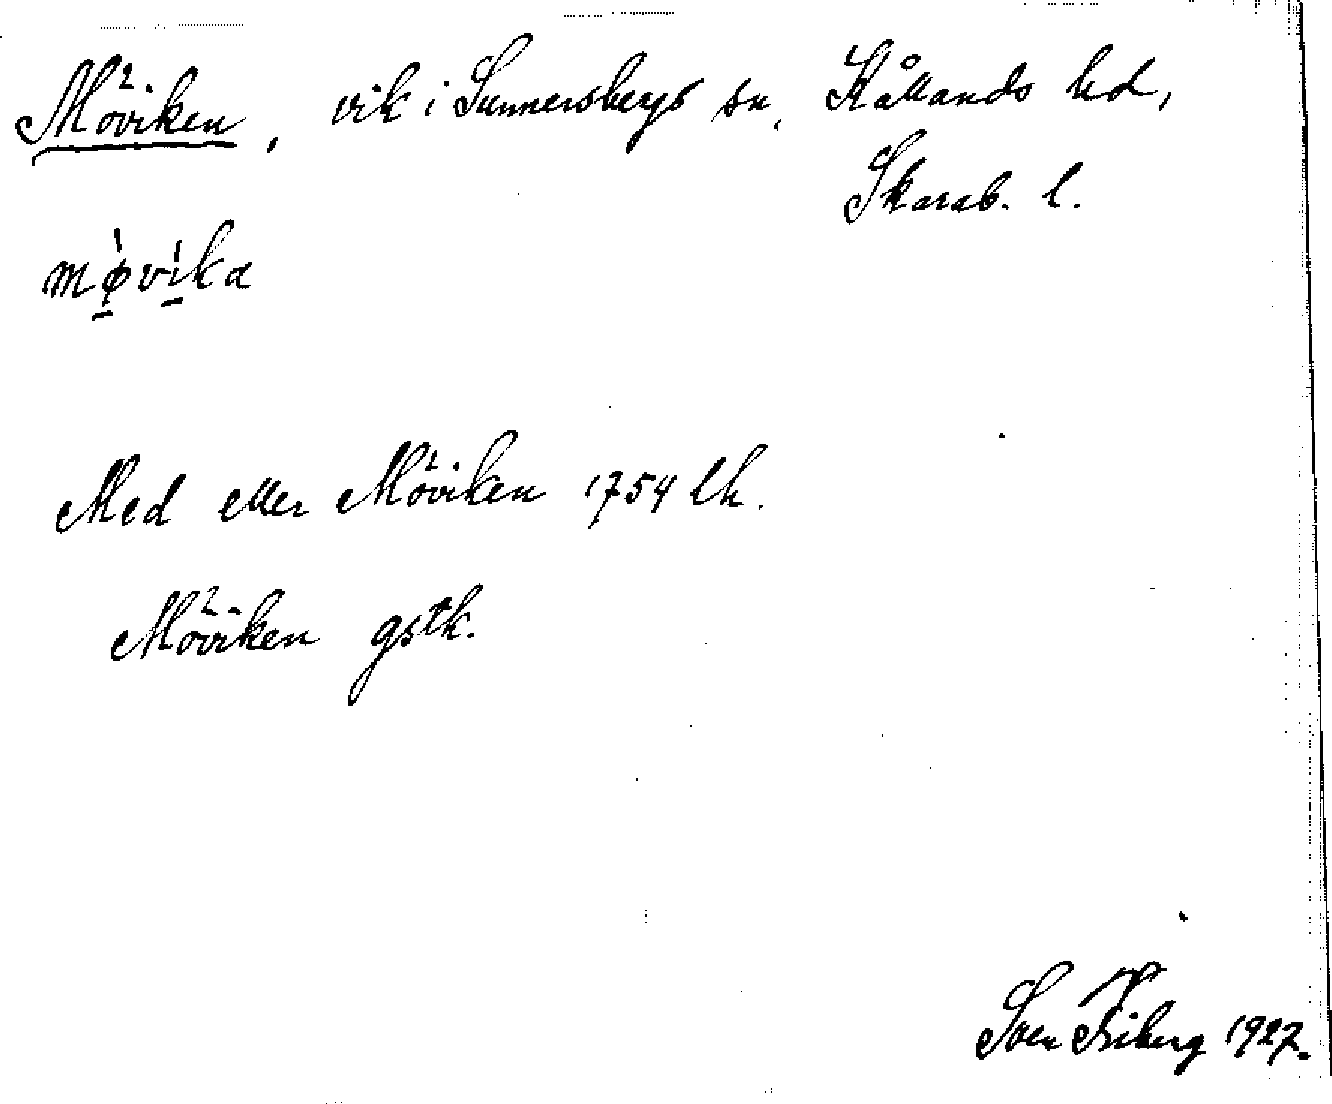 Möviken, vik i Sunnersbergs sn, Kållands hd,
Skarab. l.
mø̀vìka
Med eller Möviken 1754 lh.
Möviken gstk.
Sven Friberg 1927.